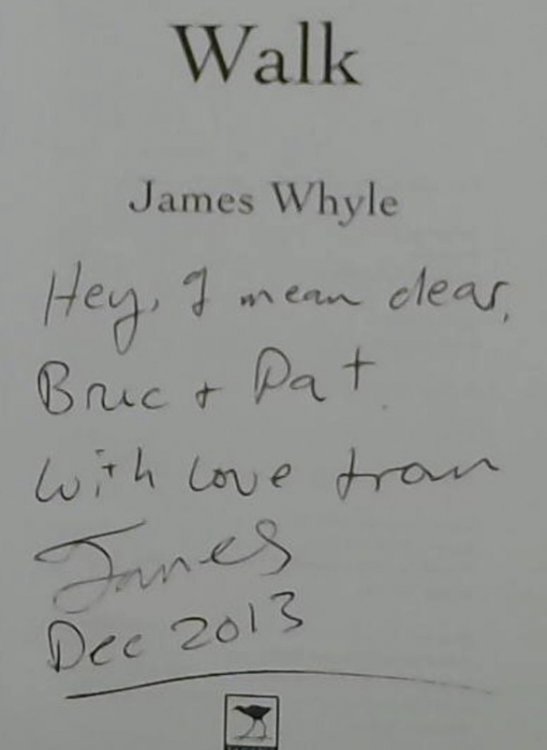 Walk
James Whyle
Hey, I mean dear,
Bric + Pat.
With love from
James
Dec 2013